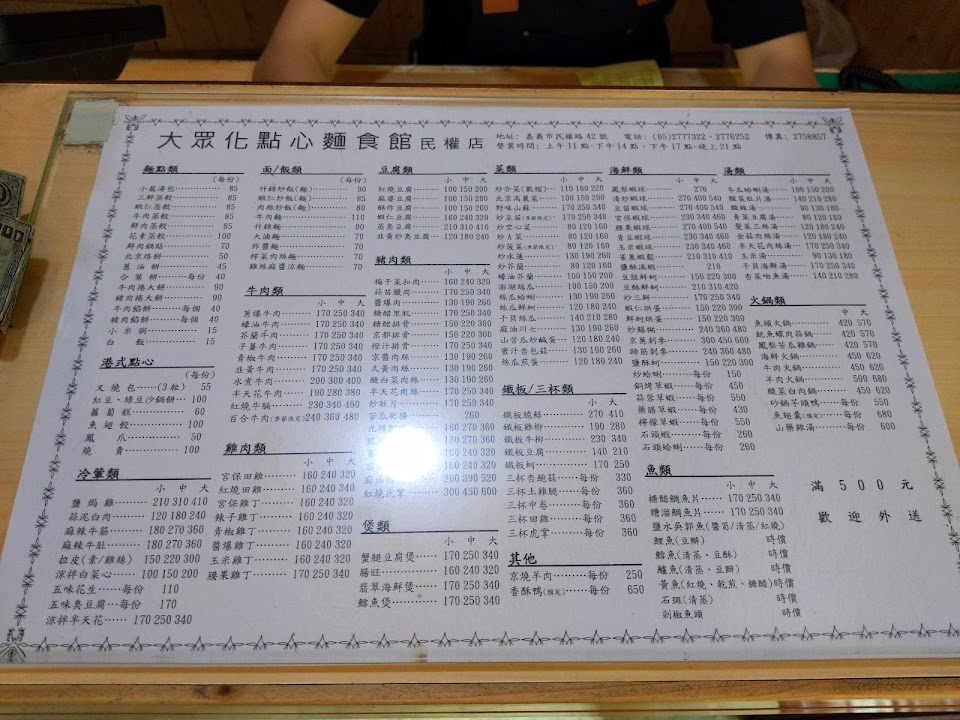 大眾化點心麵食館 民權店
地址: 嘉義市民權路42號 電話: (05)2777322、2776252 傳真: 2758857
營業時間: 上午11點-下午14點、下午17點-晚上21點
麵點類
(每份)
小籠湯包 85
三鮮蒸餃 85
蝦仁蒸餃 85
牛肉蒸餃 85
鮮肉蒸餃 85
花素蒸餃 100
鮮肉鍋貼 70
北京烙餅 50
蔥油餅 45
合菜餅 每份 40
牛肉捲大餅 90
豬肉捲大餅 90
牛肉餡餅 每個 40
豬肉餡餅 每個 40
小米粥 15
白飯 15
港式點心
(每份)
叉燒包(3粒) 55
紅豆、綠豆沙鍋餅 100
蘿蔔糕 60
魚翅餃 100
鳳爪 50
燒賣 100
冷葷類
小 中 大
鹽焗雞 210 310 410
蒜泥白肉 120 180 240
麻辣牛筋 180 270 360
麻辣牛肚 180 270 360
拉皮(素/雞絲) 150 220 300
涼拌白菜心 100 150 200
五味花生 每份 110
五味臭豆腐 每份 170
涼拌半天花 170 250 340
面/飯類
(每份)
什錦炒飯(麵) 90
蝦仁炒飯(麵) 85
肉絲炒飯(麵) 80
牛肉麵 110
什錦麵 90
大滷麵 70
炸醬麵 70
榨菜肉絲麵 70
雞絲麻醬涼麵 70
牛肉類
小 中 大
蔥爆牛肉 170 250 340
蠔油牛肉 170 250 340
芥蘭牛肉 170 250 340
子薑牛肉 170 250 340
青椒牛肉 170 250 340
韭黃牛肉 170 250 340
水煮牛肉 200 300 400
半天花牛肉 190 280 380
紅燒牛腩 230 340 460
百合牛肉(季節限定) 240 360 480
雞肉類
小 中 大
宮保田雞 160 240 320
紅燒田雞 160 240 320
宮保雞丁 160 240 320
辣子雞丁 160 240 320
青椒雞丁 160 240 320
醬爆雞丁 160 240 320
玉米雞丁 160 240 320
腰果雞丁 170 250 340
豆腐類
小 中 大
紅燒豆腐 100 150 200
麻婆豆腐 100 150 200
酥炸豆腐 100 150 200
蝦仁豆腐 160 240 320
蒸臭豆腐 210 310 410
韭黃炒臭豆腐 120 180 240
豬肉類
小 中 大
梅干菜扣肉 160 240 320
蒜苗臘肉 170 250 340
醬爆肉 130 190 260
糖醋里肌 170 250 340
糖醋排骨 150 220 300
京都排骨 150 220 300
橙汁排骨 170 250 340
京醬肉絲 130 190 260
久黃肉絲 130 190 260
酸白菜肉絲 130 190 260
半天花肉絲 170 250 340
炒肚片 170 250 340
260
180 270 360
260 390 520
紅燒虎掌 300 450 600
煲類
小 中 大
蟹腿豆腐煲 170 250 340
腸旺 160 240 320
翡翠海鮮煲 170 250 340
鱈魚煲 170 250 340
菜類
小 中 大
炒合菜(戴帽) 110 160 220
北京高麗菜 100 150 200
野味山蘇 170 250 340
炒豆苗(季節限定) 170 250 340
炒空心菜 80 120 160
炒A菜 80 120 160
炒菠菜(季節限定) 80 120 160
炒水蓮 130 190 260
炒芥蘭 80 120 160
蠔油芥蘭 100 150 200
澎湖絲瓜 100 150 200
絲瓜蛤蜊 130 190 260
絲瓜鮮蚵 120 180 240
干貝絲瓜 140 210 280
麻油川七 130 190 260
山苦瓜炒鹹蛋 120 180 240
蜜汁杏包菇 130 190 260
絲瓜煎蛋 120 180 240
鐵板/三杯類
小 大
鐵板脆鱔 270 410
鐵板雞柳 190 280
鐵板牛柳 230 340
鐵板豆腐 140 210
鐵板蚵 170 250
三杯杏鮑菇 每份 330
三杯土雞腿 每份 360
三杯中卷 每份 360
三杯田雞 每份 360
三杯虎掌 每份 360
其他
京燒羊肉 每份 250
香酥鴨(預定) 每份 650
海鮮類
小 中 大
鳳梨蝦球 270
清炒蝦球 270 400 540
豆苗蝦球 270 400 540
宮保蝦球 230 340 460
腰果蝦球 270 400 540
青豆蝦球 230 340 460
玉米蝦球 230 340 460
雀巢蝦鬆 210 310 410
鹽酥溪蝦 210
豆豉鮮蚵 210 310
豆酥鮮蚵 210 310
炒三鮮 170 250 340
蝦仁烘蛋 150 220 300
鮮蚵烘蛋 150 220 300
炒鱔糊 240 360 480
京蔥刺參 300 450 600
蹄筋刺參 240 360 480
鹽酥蚵 150 220 300
炒蛤蜊 每份 150
銅烤草蝦 每份 450
蒜蓉草蝦 每份 550
藥膳草蝦 每份 430
檸檬草蝦 每份 550
石頭蝦 每份 260
石頭蛤蜊 每份 260
魚類
小 中 大
糖醋鯛魚片 170 250 340
糟溜鯛魚片 170 250 340
鹽水吳郭魚(醬筍/清蒸/紅燒)
鯉魚(豆瓣) 時價
鱈魚(清蒸、豆酥) 時價
鱸魚(清蒸、豆瓣) 時價
黃魚(紅燒、乾煎、糖醋) 時價
石斑(清蒸) 時價
剁椒魚頭 時價
湯類
小 中 大
冬瓜蛤蜊湯 100 150 200
酸菜肚片湯 140 210 280
酸辣湯 90 130 180
青菜豆腐湯 80 120 160
髮菜三絲湯 120 180 240
金菇肉絲湯 120 180 240
半天花肉絲湯 170 250 340
玉米湯 90 130 180
干貝海鮮湯 170 250 340
杏菜吻魚湯 140 210 280
火鍋類
中 大
魚頭火鍋 420 570
魷魚螺肉蒜鍋 420 570
鳳梨苦瓜雞鍋 420 570
海鮮火鍋 450 620
牛肉火鍋 450 620
羊肉火鍋 500 680
酸菜白肉鍋 450 620
砂鍋子頭鴨 每份 550
魚翅羹(預定) 每份 680
山藥雞湯 每份 600
滿500元
歡迎外送